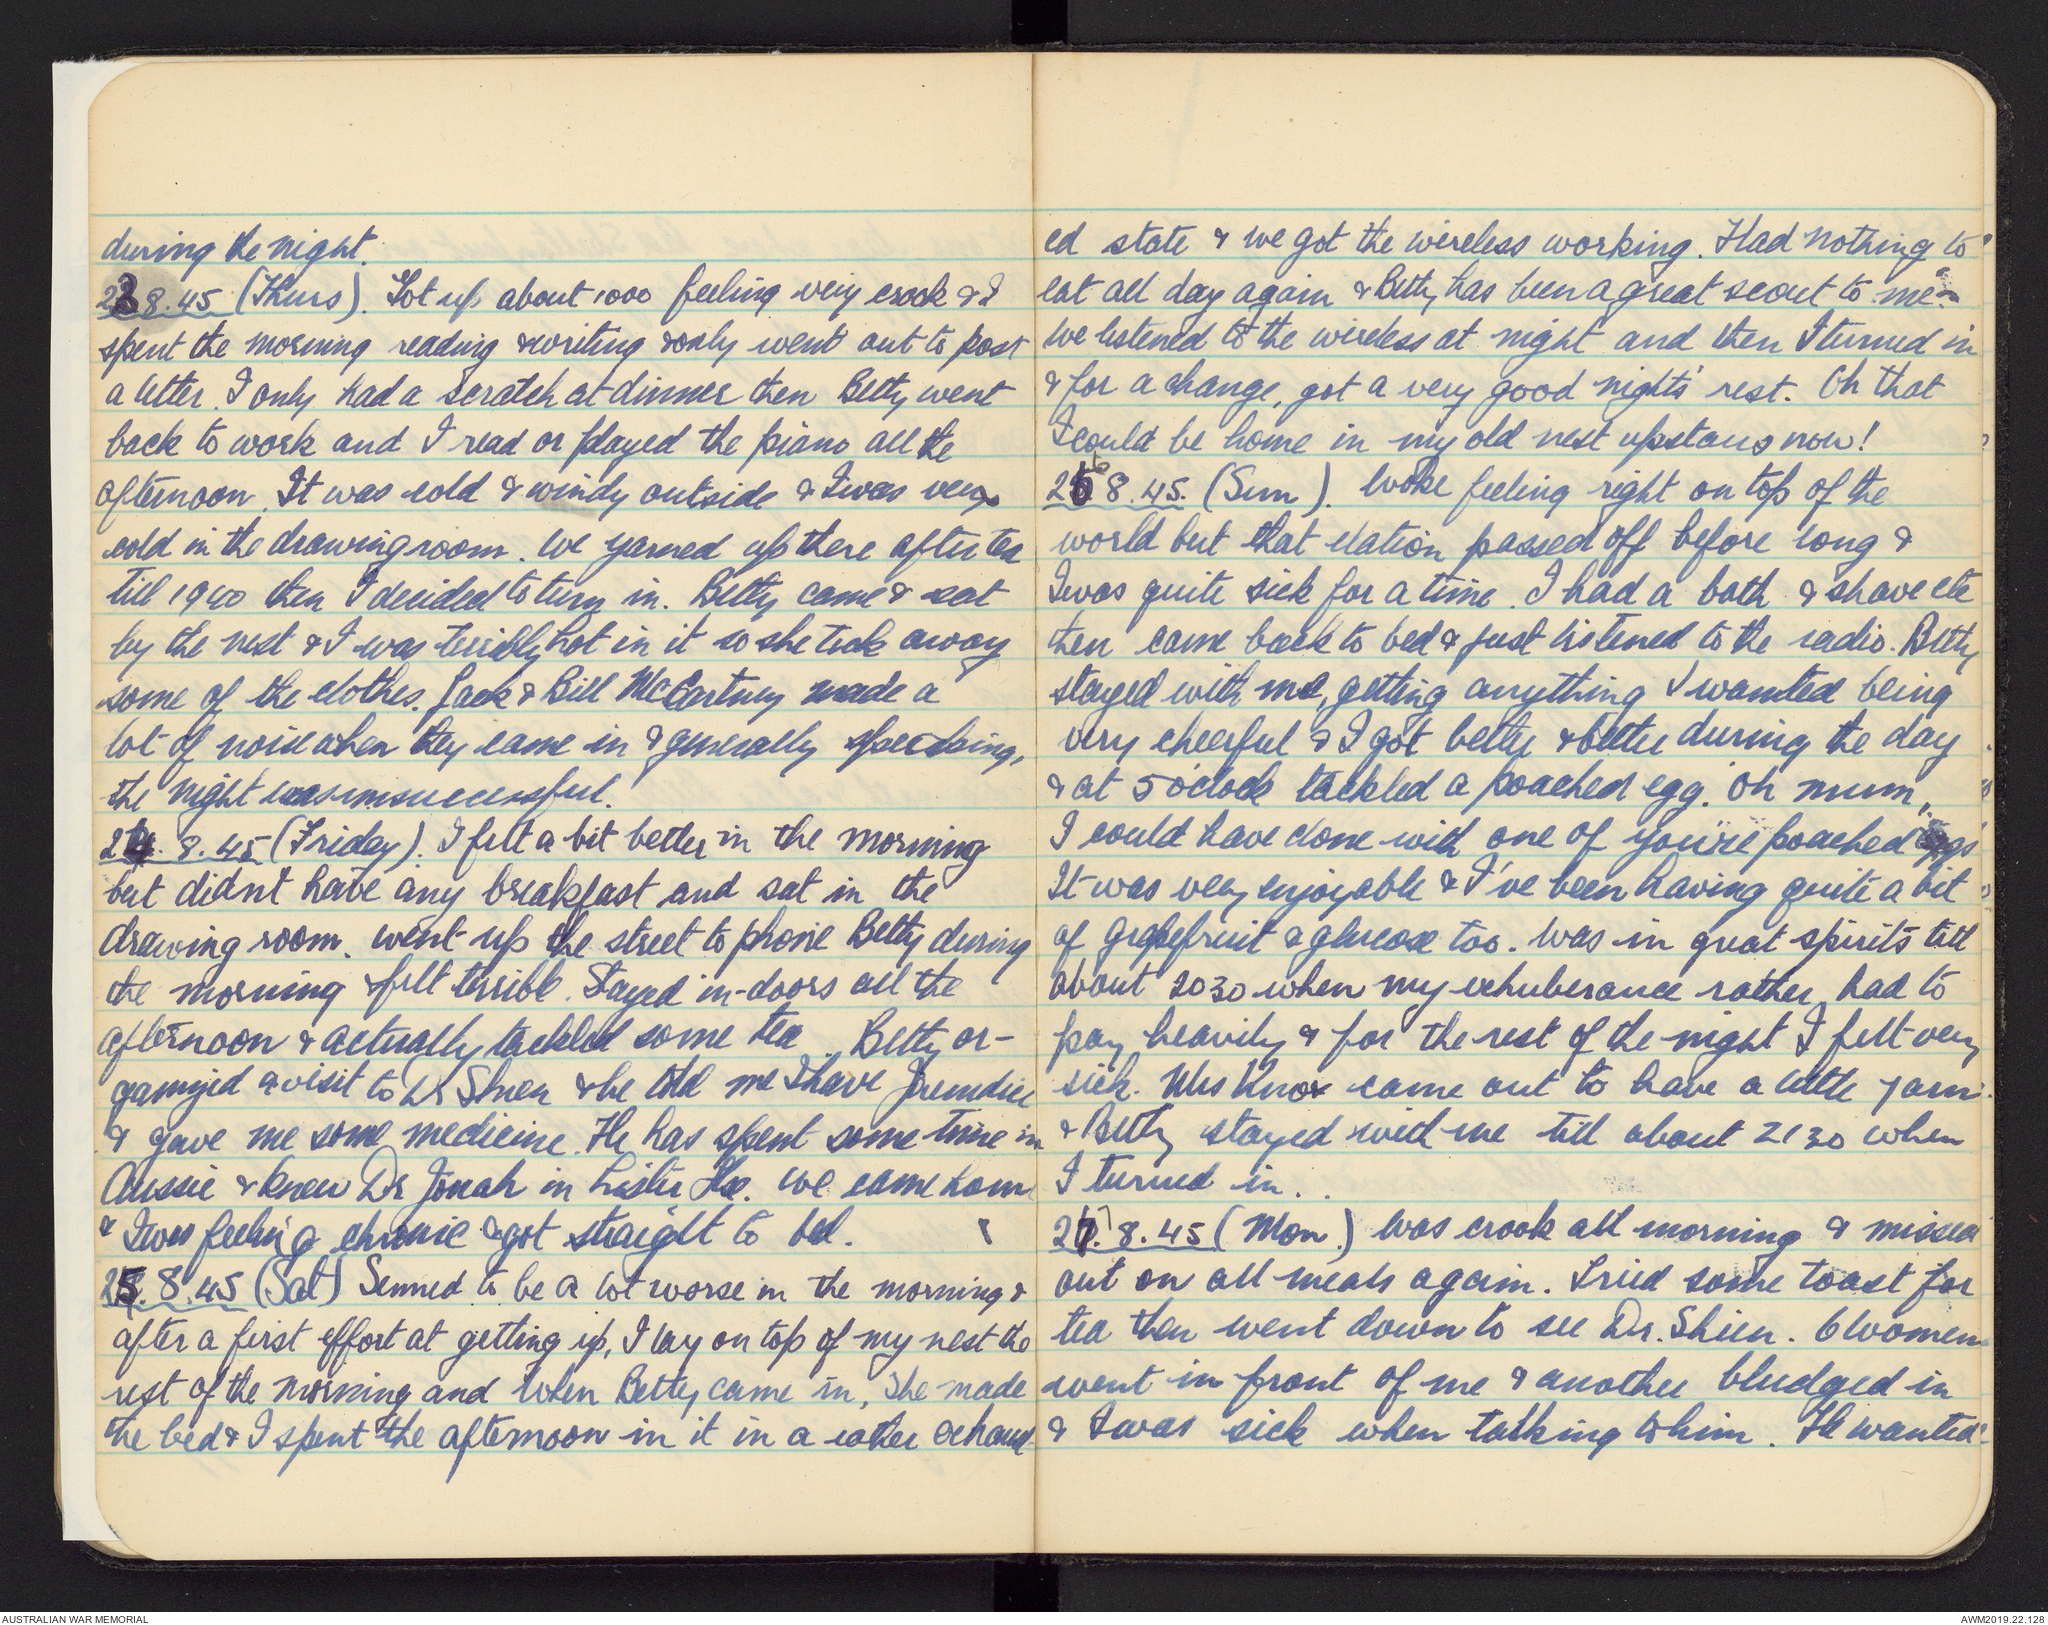 during the night.
23.8.45 (Thurs). Got up about 1000 feeling very crook & I
spent the morning reading & writing & only went out to post
a letter. I only had a scratch at dinner then Betty went
back to work and I read or played the piano all the
afternoon. It was cold & windy outside & I was very
cold in the drawing room. We yarned up there after tea
till 1940 then I decided to turn in. Betty came & sat
by the nest & I was terribly hot in it so she took away
some of the clothes. Jack & Bill McCartney made a
lot of noise when they came in & generally speaking,
the night was unsuccessful.
24.8.45 (Friday). I felt a bit better in the morning
but didn't have any breakfast and sat in the
drawing room. Went up the street to phone Betty during
the morning & felt terrible. Stayed in-doors all the
afternoon & actually tackled some tea. Betty or-
ganized a visit to Dr Shien & he told me I have Jaundice
& gave me some medicine. He has spent some time in
Aussie & knew Dr Jonah in Lister Hse. We came home
& I was feeling chronic & got straight to bed.
25.8.45 (Sat) Seemed to be a lot worse in the morning &
after a first effort at getting up, I lay on top of my nest the
rest of the morning and when Betty came in, she made
the bed & I spent the afternoon in it in a rather exhaust-
ed state & we got the wireless working. Had nothing to
eat all day again & Betty has been a great scout to me.
We listened to the wireless at night and then I turned in
& for a change, got a very good nights' rest. Oh that
I could be home in my old nest upstairs now!
26.8.45. (Sun). Woke feeling right on top of the
world but that elation passed off before long &
I was quite sick for a time. I had a bath & shave etc
then came back to bed & just listened to the radio. Betty
stayed with me, getting anything I wanted being
very cheerful & I got better & better during the day
& at 5 o'clock tackled a poached egg. Oh mum,
I could have done with one of you're poached eggs
It was very enjoyable & I've been having quite a bit
of grapefruit & glucose too. Was in great spirits till
about 2030 when my exhuberance rather had to
pay heavily & for the rest of the night I felt very
sick. Wes Knox came out to have a little yarn
& Betty stayed with me till about 2130 when
I turned in.
27.8.45 (Mon.) Was crook all morning & missed
out on all meals again. Tried some toast for
tea then went down to see Dr. Shien. 6 women
went in front of me & another bludged in
& I was sick when talking to him. He wanted
AUSTRALIAN WAR MEMORIAL
AWM2019.22.128